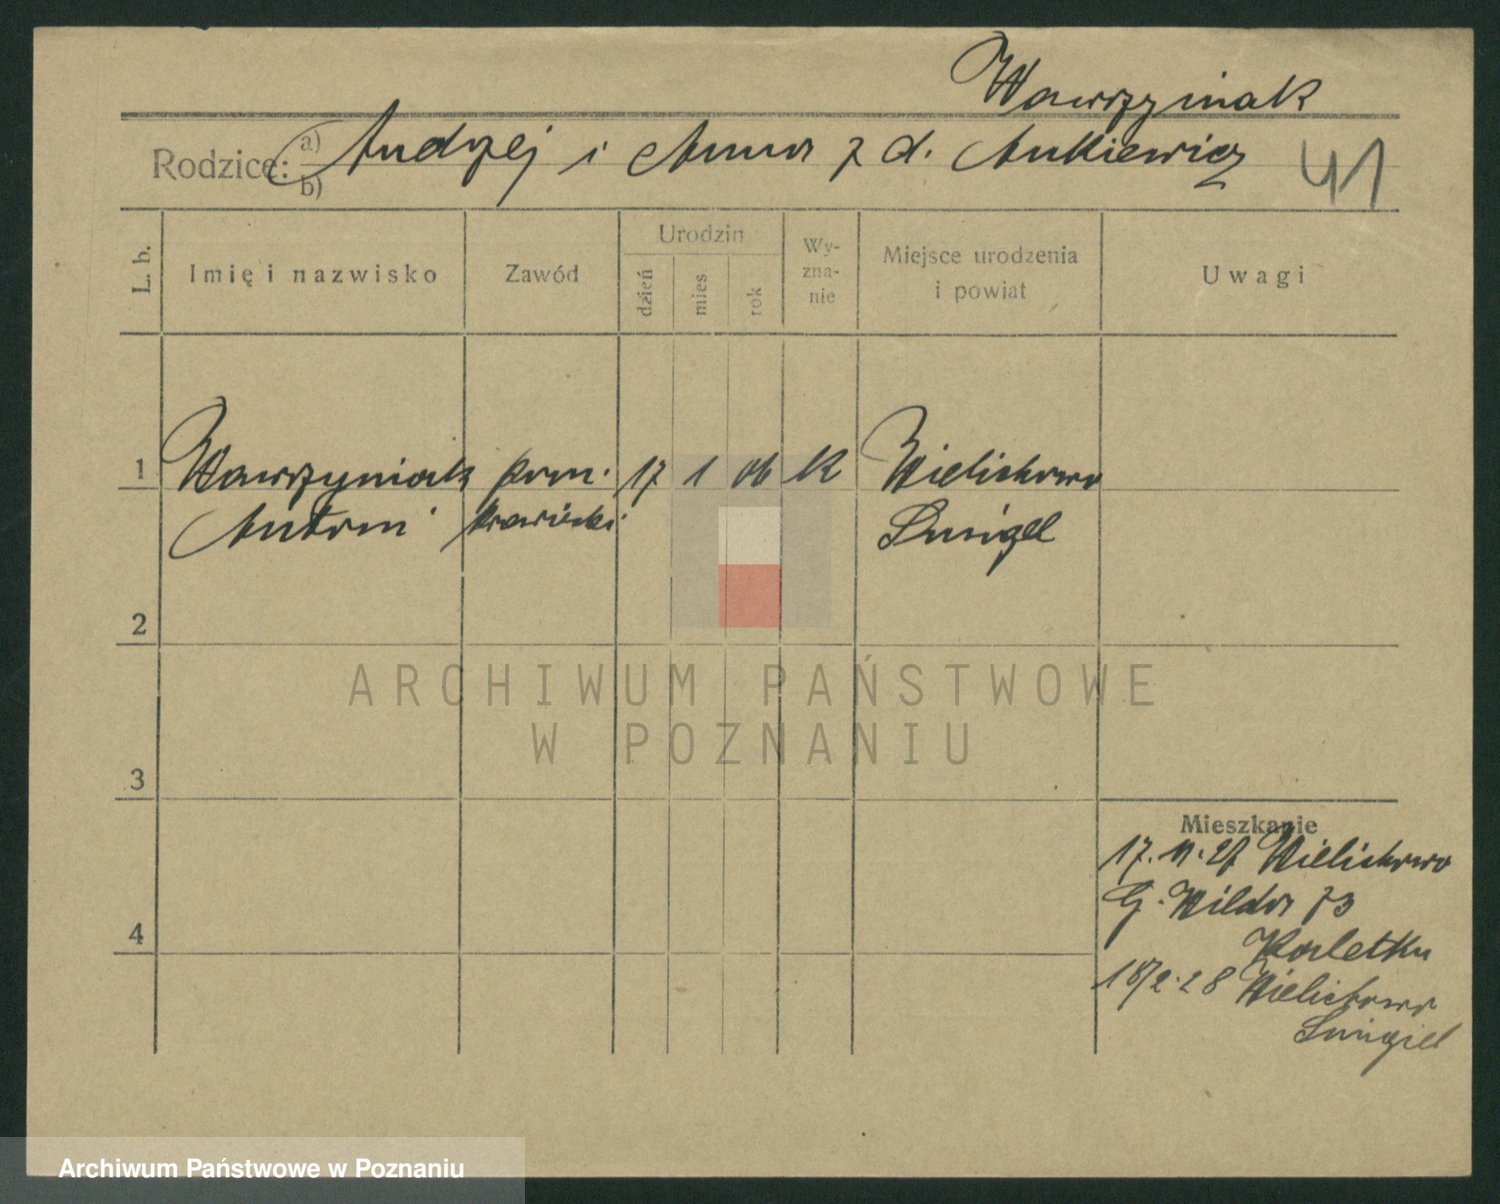 Wawrzyniak
Rodzice: a) b) Andrzej i Anna z d. Ankiewicz 41
L. b. Imię i nazwisko Zawód Urodzin dzień mies rok Wy-zna-nie Miejsce urodzenia i powiat Uwagi
1 Wawrzyniak pom. 17 1 06 K Wielichowo
Antoni krawiecki Śmigel
2
3
4
ARCHIWUM PAŃSTWOWE
W POZNANIU
Mieszkanie
17. 11. 27 Wielichowo
G. Wilda 73
18/2.28 Wielichowo
Śmigiel
Archiwum Państwowe w Poznaniu